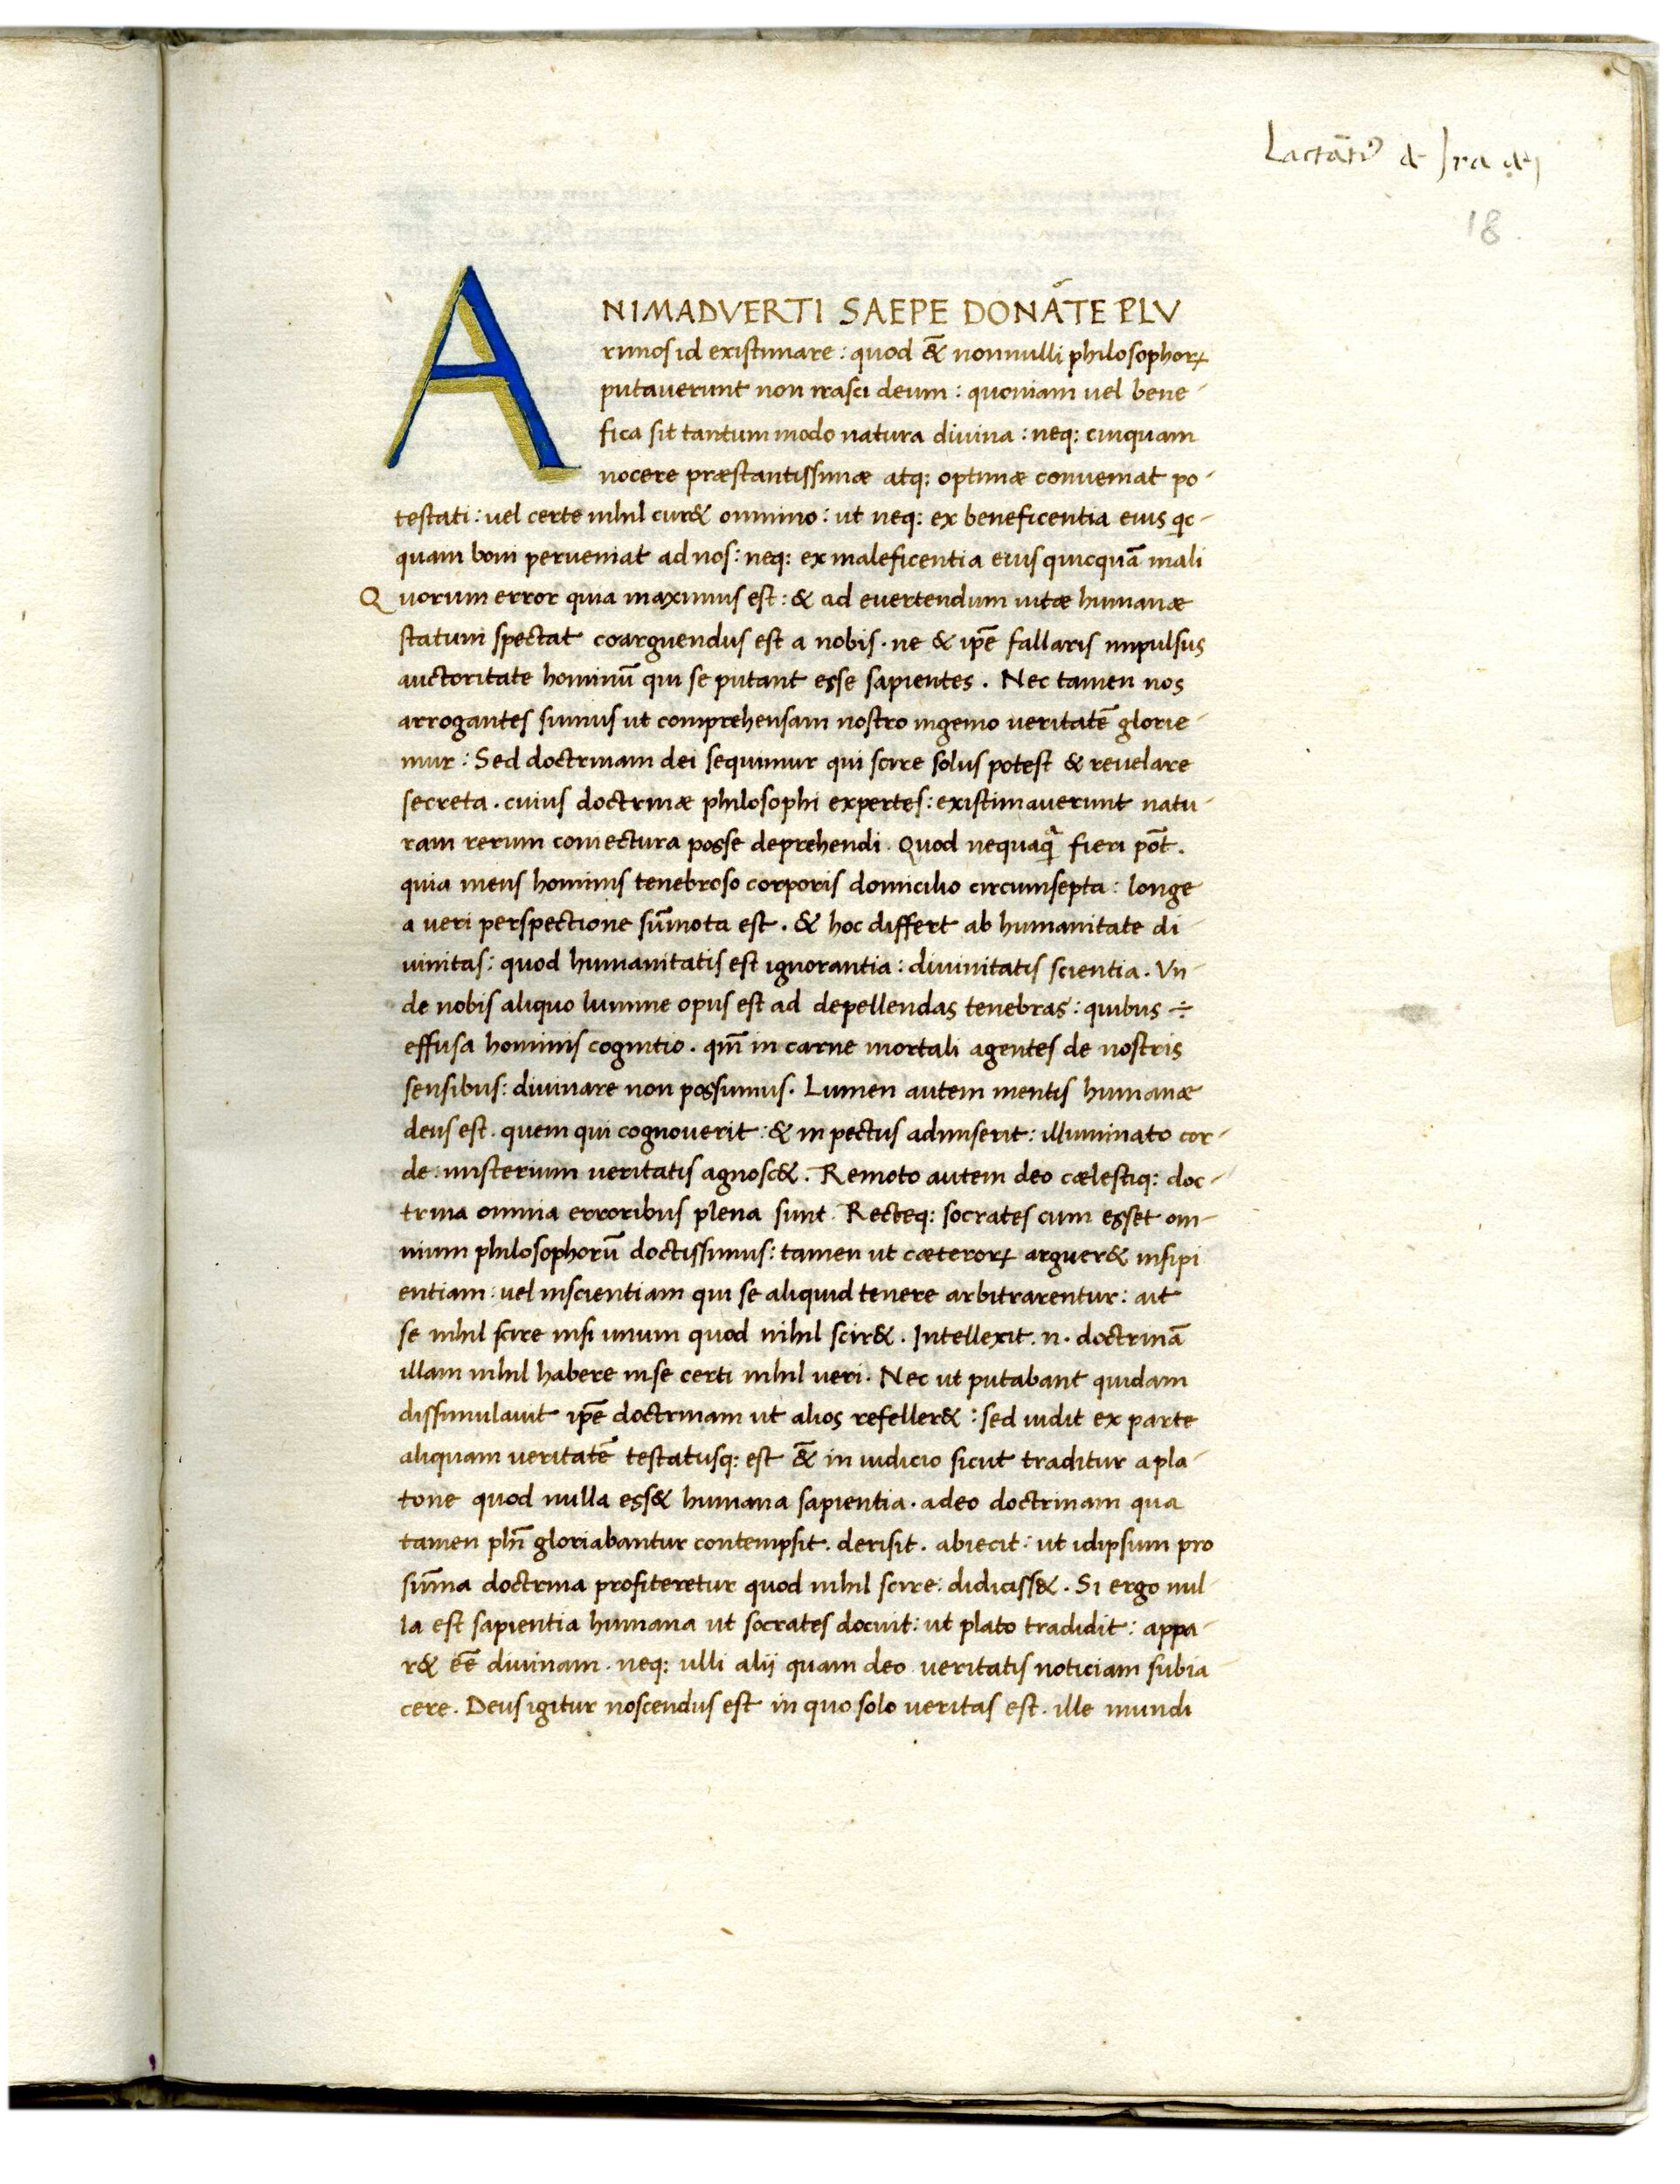 Lactāti⁹ de Ira dei
18.
ANIMADVERTI SAEPE DONATE PLV
rimos id existimare : quod &̄ nonnulli philosophoꝝ
putauerunt non irasci deum : quoniam uel bene-
fica sit tantummodo natura diuina : neq; cuiquam
nocere præstantissimæ atq; optimæ conueniat po-
testati : uel certe nihil cur& omnino : ut neq; ex beneficentia eius qc-
quam boni perueniat ad nos : neq; ex maleficentia eius quicquā mali
Quorum error quia maximus est : & ad euertendum uitæ humanæ
statum spectat coarguendus est a nobis . ne & ip̄e fallaris impulsus
auctoritate hominū qui se putant esse sapientes . Nec tamen nos
arrogantes sumus ut comprehensam nostro ingenio ueritatē glorie-
mur : Sed doctrinam dei sequimur qui scire solus potest & reuelare
secreta . cuius doctrinæ philosophi expertes : existimauerunt natu-
ram rerum coniectura posse deprehendi . Quod nequaꝗ̃ fieri pōt .
quia mens hominis tenebroso corporis domicilio circumsepta : longe
a ueri perspectione sūmota est . & hoc differt ab humanitate di
uinitas : quod humanitatis est ignorantia : diuinitatis scientia . Vn-
de nobis aliquo lumine opus est ad depellendas tenebras : quibus ÷
effusa hominis cognitio . qm̄ in carne mortali agentes de nostris
sensibus : diuinare non possumus . Lumen autem mentis humanæ
deus est . quem qui cognouerit : & in pectus admiserit : illuminato cor-
de : misterium ueritatis agnosc& . Remoto autem deo cælestiq; doc-
trina omnia erroribus plena sunt . Recteq; socrates cum esset om-
nium philosophorū doctissimus : tamen ut cæteroꝝ arguer& insipi
entiam : uel inscientiam qui se aliquid tenere arbitrarentur : ait
se nihil scire nisi unum quod nihil scir& . Intellexit .n. doctrinā
illam nihil habere in se certi nihil ueri . Nec ut putabant quidam
dissimulauit ip̄e doctrinam ut alios refeller& : sed uidit ex parte
aliquam ueritatē testatusq; est &̄ in iudicio sicut traditur a pla-
tone quod nulla ess& humana sapientia . adeo doctrinam qua
tamen ph̄i gloriabantur contempsit . derisit . abiecit : ut idipsum pro
sūma doctrina profiteretur quod nihil scire : didiciss& . Si ergo nul-
la est sapientia humana ut socrates docuit : ut plato tradidit : appa-
r& eē diuinam . neq; ulli alij quam deo ueritatis noticiam subia-
cere . Deus igitur noscendus est in quo solo ueritas est . ille mundi